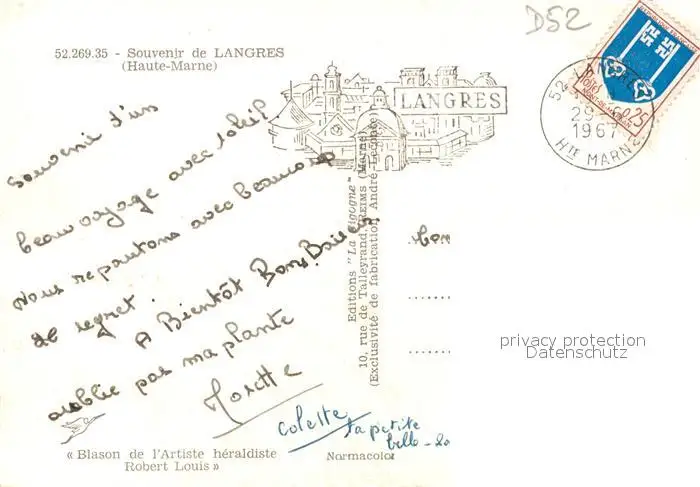 D52
52.269.35 - Souvenir de LANGRES
(Haute-Marne)
LANGRES
52 LANGRES
29
1967
HTE MARNE
0,25
Souvenir d'un
beau voyage avec soleil
Nous repartons avec beaucoup
de regret.
A Bientôt Bons Baisers
oublie pas ma plante
Colette
ta petite
belle-
Editions "La Cigogne"
10, rue de Talleyrand, REIMS (Marne)
(Exclusivité de fabrication André Leconte)
privacy protection
Datenschutz
« Blason de l'Artiste héraldiste
Robert Louis »
Normacolor